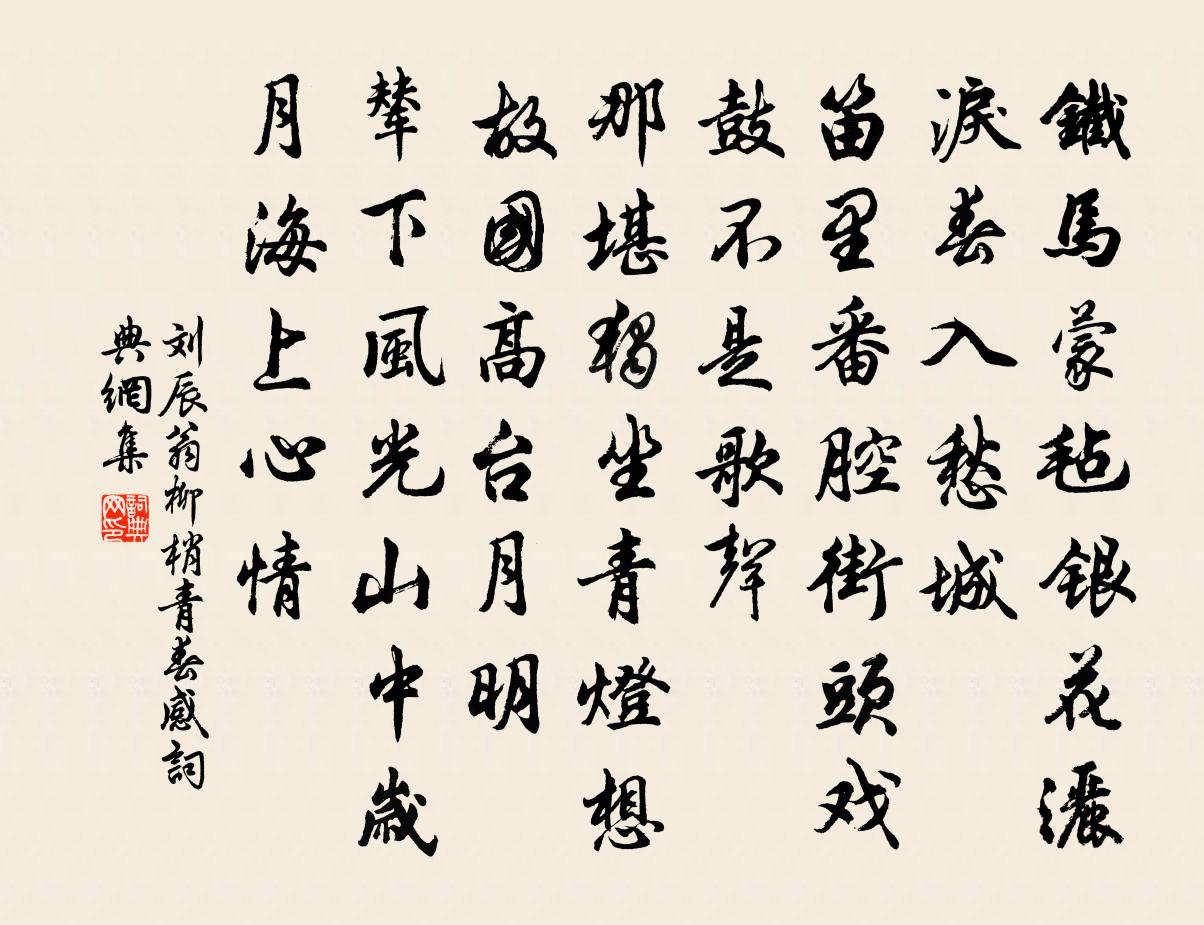 鐵馬蒙毡銀花灑
淚春入愁城
笛里番腔街頭戏
鼓不是歌聲
那堪獨坐青燈想
故國高台月明
輦下風光山中歲
月海上心情
刘辰翁柳梢青春感詞
典網集
詞典网印